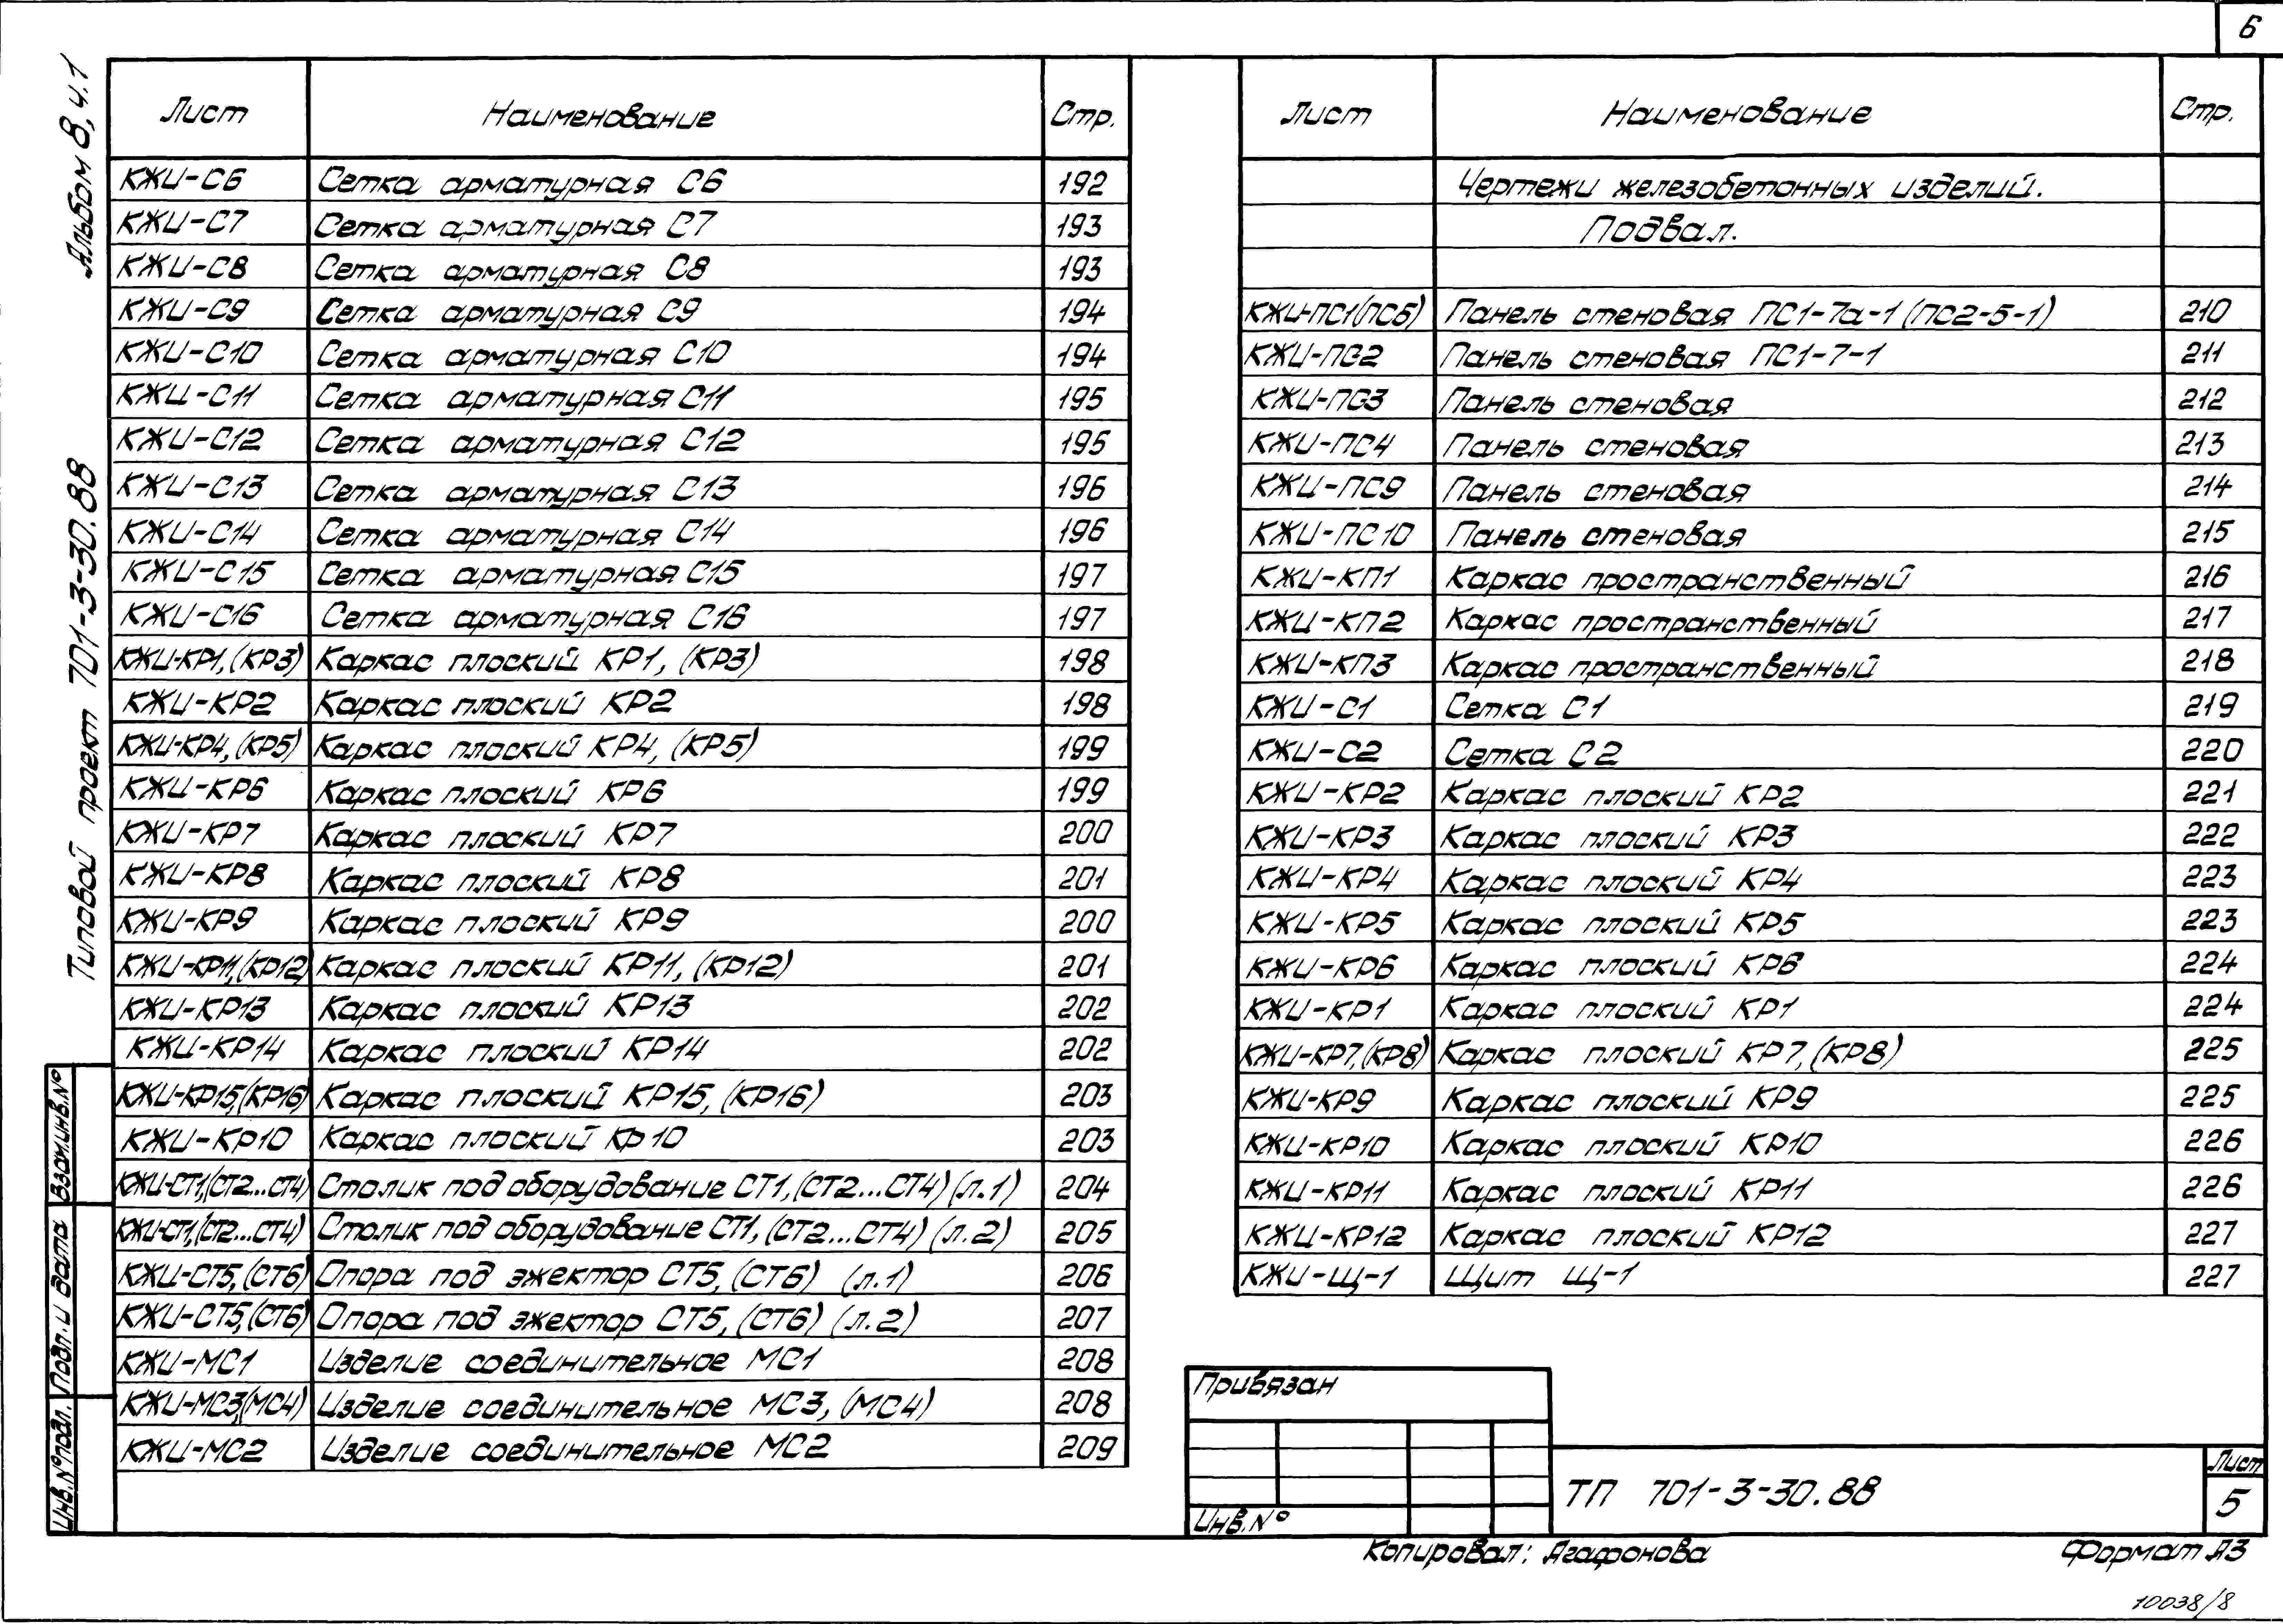 6
Альбом 8, ч.1
Типовой проект 701-3-30.88
Лист Наименование Стр.
КЖИ-С6 Сетка арматурная С6 192
КЖИ-С7 Сетка арматурная С7 193
КЖИ-С8 Сетка арматурная С8 193
КЖИ-С9 Сетка арматурная С9 194
КЖИ-С10 Сетка арматурная С10 194
КЖИ-С11 Сетка арматурная С11 195
КЖИ-С12 Сетка арматурная С12 195
КЖИ-С13 Сетка арматурная С13 196
КЖИ-С14 Сетка арматурная С14 196
КЖИ-С15 Сетка арматурная С15 197
КЖИ-С16 Сетка арматурная С16 197
КЖИ-КР1, (КР3) Каркас плоский КР1, (КР3) 198
КЖИ-КР2 Каркас плоский КР2 198
КЖИ-КР4, (КР5) Каркас плоский КР4, (КР5) 199
КЖИ-КР6 Каркас плоский КР6 199
КЖИ-КР7 Каркас плоский КР7 200
КЖИ-КР8 Каркас плоский КР8 201
КЖИ-КР9 Каркас плоский КР9 200
КЖИ-КР11,(КР12) Каркас плоский КР11, (КР12) 201
КЖИ-КР13 Каркас плоский КР13 202
КЖИ-КР14 Каркас плоский КР14 202
КЖИ-КР15,(КР16) Каркас плоский КР15, (КР16) 203
КЖИ-КР10 Каркас плоский КР10 203
КЖИ-СТ1,(СТ2...СТ4) Столик под оборудование СТ1, (СТ2...СТ4) (л.1) 204
КЖИ-СТ1,(СТ2...СТ4) Столик под оборудование СТ1, (СТ2...СТ4) (л.2) 205
КЖИ-СТ5, (СТ6) Опора под эжектор СТ5, (СТ6) (л.1) 206
КЖИ-СТ5,(СТ6) Опора под эжектор СТ5, (СТ6) (л.2) 207
КЖИ-МС1 Изделие соединительное МС1 208
КЖИ-МС3,(МС4) Изделие соединительное МС3, (МС4) 208
КЖИ-МС2 Изделие соединительное МС2 209
Лист Наименование Стр.
Чертежи железобетонных изделий.
Подвал.
КЖИ-ПС1(ПС5) Панель стеновая ПС1-7а-1 (ПС2-5-1) 210
КЖИ-ПС2 Панель стеновая ПС1-7-1 211
КЖИ-ПС3 Панель стеновая 212
КЖИ-ПС4 Панель стеновая 213
КЖИ-ПС9 Панель стеновая 214
КЖИ-ПС10 Панель стеновая 215
КЖИ-КП1 Каркас пространственный 216
КЖИ-КП2 Каркас пространственный 217
КЖИ-КП3 Каркас пространственный 218
КЖИ-С1 Сетка С1 219
КЖИ-С2 Сетка С2 220
КЖИ-КР2 Каркас плоский КР2 221
КЖИ-КР3 Каркас плоский КР3 222
КЖИ-КР4 Каркас плоский КР4 223
КЖИ-КР5 Каркас плоский КР5 223
КЖИ-КР6 Каркас плоский КР6 224
КЖИ-КР1 Каркас плоский КР1 224
КЖИ-КР7, (КР8) Каркас плоский КР7, (КР8) 225
КЖИ-КР9 Каркас плоский КР9 225
КЖИ-КР10 Каркас плоский КР10 226
КЖИ-КР11 Каркас плоский КР11 226
КЖИ-КР12 Каркас плоский КР12 227
КЖИ-Щ-1 Щит Щ-1 227
Взам.инв.№
Подп. и дата
Инв.№подл.
Привязан
Инв.№
ТП 701-3-30.88
Лист
5
Копировал: Агафонова
Формат А3
10038/8